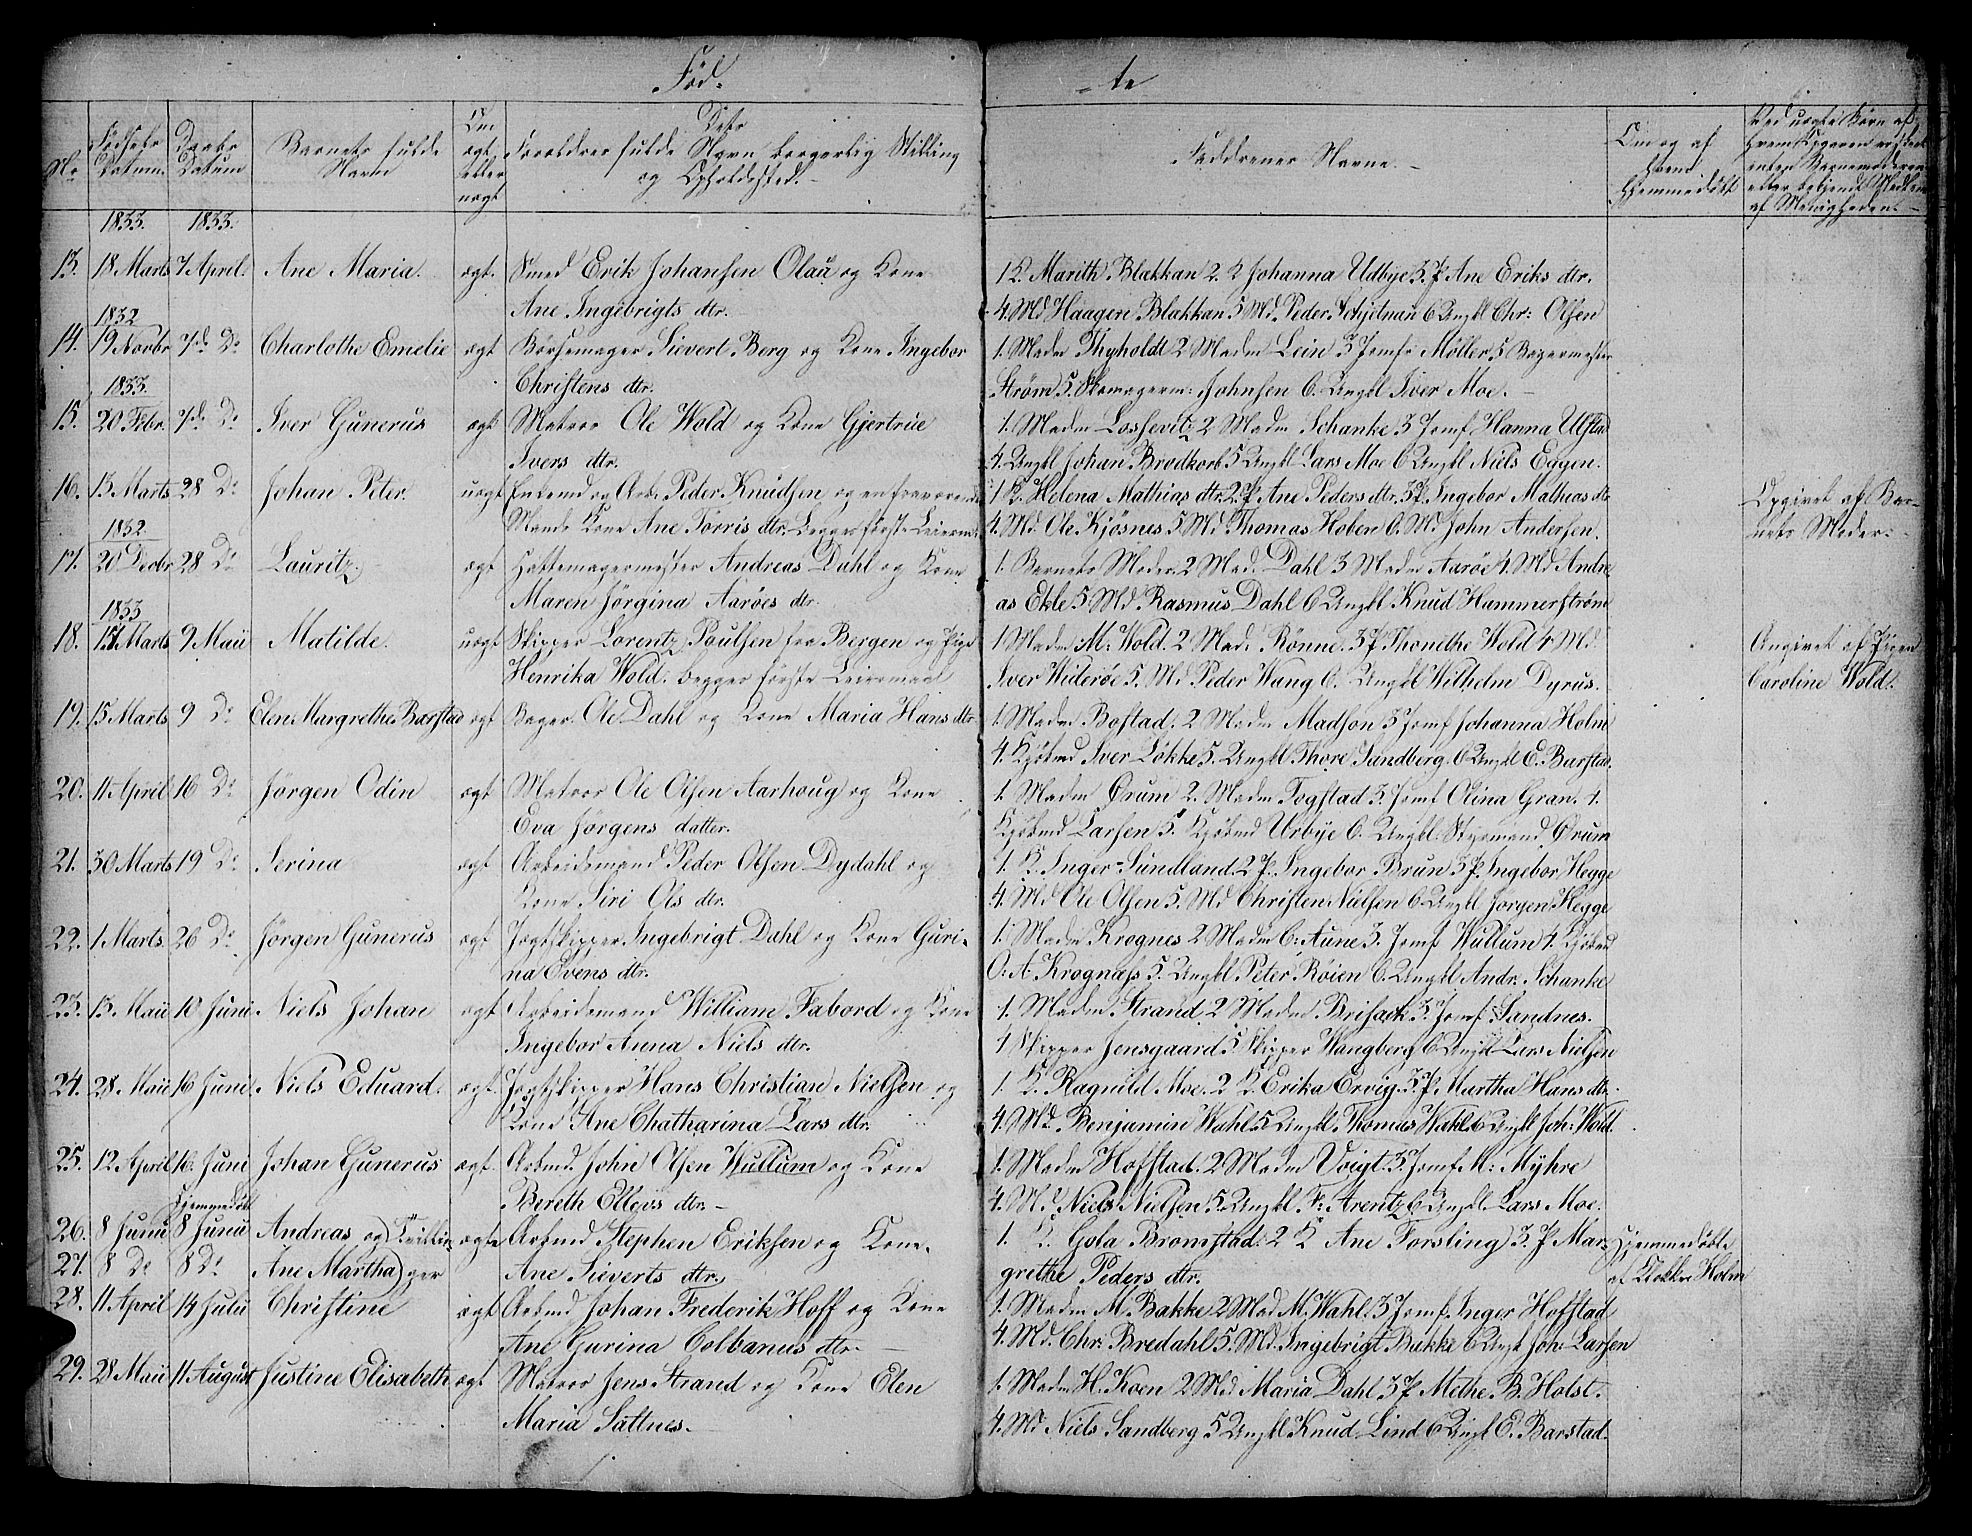 Fød-
-te
No
Fødsels Datum.
Daabs Datum
Barnets fulde Navn
Om ægt eller uægt
Dets Forældres fulde Navn borgerlig Stilling og Opholdssted.
Faddrenes Navne.
Om og af hvem hjemmedøbt
1833. 1833.
13. 18 Marts 7 April. Ane Maria. ægt. Smed Erik Johansen Olau og Kone
Ane Ingebrigts dtr.
1 K. Marith Blakkan 2. K Johanna Udbye 3. P Ane Eriks dtr.
4. Md Haagen Blakkan 5 Md. Peder Schjelnau 6 Ungkl Chr: Olsen
1832
14. 19 Novbr 7de Do Charlothe Emelie ægt Børsemager Sievert Berg og Kone Ingebor
Christens dtr.
1. Madm Thyholdt 2 Madm Lein 3 Jomfr Møller 5 Bagermester
Strøm 5. Skomagerm: Johnsen 6. Ungkl Iver Moe.
1833.
15. 20 Febr. 7de Do Iver Gunerus ægt Matros Ole Wold og Kone Gjertrue
Ivers dtr.
1. Madm Lossevitz 2 Madm Schanke 3 Jomf Hanna Ulstad
4. Ungkl Johan Brodkorb 5 Ungkl Lars Moe 6 Ungkl Niels Eggen.
16. 13 Marts 28 Do Johan Peter. uægt Enkemd og Arb. Peder Knudsen og en fraværende
Mands Kone Ane Torris dtr. Begges første Leierm:
1 K. Helena Mathias dtr. 2. P. Ane Peders dtr. 3 P. Ingebor Mathias dtr
4. Md. Ole Kjøsnes 5 Md Thomas Hoben 6. Md John Andersen.
Opgivet af Bar-
nets Moder.
1832
17. 20 Decbr 28 Do Lauritz. ægt Hattemagermester Andreas Dahl og Kone
Maren Jørgina Aarøes dtr.
1. Barnets Moder 2 Mad. Dahl 3 Madm Aarøe 4. Md Andre
as Ekle 5. Md. Rasmus Dahl 6 Ungkl Knud Hammerstrøm
1833
18. Marts 9 Maii Matilde. uægt Skipper Lorentz Poulsen fra Bergen og Pige
Henrika Wold. begges første Leiermaal
1 Madm M: Wold. 2 Mad: Rønne. 3 P Thonethe Wold 4 Md.
Iver Widerøe 5. Md Peder Wang 6. Ungkl Wilhelm Dyrus.
Angivet af Pigen
Caroline Wold.
19. 15 Marts 9 Do Elen Margrethe Barstad ægt Bager Ole Dahl og Kone Maria Hans dtr
1. Madm Bostad. 2 Madm Madson 3 Jomf Johanna Holm
4. Kjøbmd Iver Løkke 5. Ungkl Thore Sundberg. 6 Ungkl E. Barstad.
20. 11 April 16 Do Jørgen Odin ægt Matros Ole Olsen Aarhoug og Kone
Eva Jørgens datter.
1. Madm Ørum 2. Madm Togstad 3. Jomf Olina Gran. 4.
Kjøbmd Larsen 5. Kjøbmd Urbye 6. Ungkl Styrmand Ørum
21. 30 Marts 19 Do Serina ægt Arbeidsmand Peder Olsen Dydahl og
Kone Siri Ols dtr.
1. K. Inger Sundland. 2 P. Ingebor Brun 3 P. Ingebor Hegge
4. Md Ole Olsen 5. Md Christen Nielsen 6 Ungkl Jørgen Hegge
22. 1 Marts 26 Do Jørgen Gunerus ægt Jagtskipper Ingebrigt Dahl og Kone Guri-
na Evens dtr.
1. Madm Krognes 2 Madm C: Aune 3. Jomf Wullum 4. Kjøbmd
O: A. Krognæss 5. Ungkl Peter Røien 6. Ungkl Andr: Schanke
23. 13 Maii 10 Juni Niels Johan ægt Arbeidsmand William Fabord og Kone
Ingebor Anna Niels dtr.
1. Madm Strand 2 Madm Brisack 3. Jomf Sandnes.
4 Skipper Jensgaard 5 Skipper Wangberg 6 Ungkl Lars Nielsen
24. 28 Maii 16 Juni Niels Eduard. ægt Jagtskipper Hans Christian Nielsen og
Kone Ane Chatharina Lars dtr.
1. K. Ragnild Moe. 2 K Erika Orvig. 3. P Martha Hans dtr.
4. Md. Benjamin Wahl. 5 Ungkl Thomas Wahl. 6 Ungkl Joh: Wold.
25. 12 April 16. Juni Johan Gunerus ægt. Arbmd. John Olsen Wullum og Kone
Bereth Ellevs dtr.
1. Madm Hofstad. 2 Madm Voigt. 3. Jomf M: Myhre
4. Md. Niels Nielsen 5. Ungkl F: Arentz 6 Ungkl Lars Moe.
hjemmedøbt
26. 8 Junii 8 Junii Andreas og Tvillin- ægte Arbmd Stephen Eriksen og Kone
27. 8 Do 8 Do Ane Martha ger Ane Sieverts dtr.
1. K. Gola Bromstad. 2 K Ane Forsling 3. P Mar-
grethe Peders dtr.
hjemmedøbte
af Klokker Holm
28. 11 April 14 Julii Christine ægt Arbmd Johan Frederik Hoff og Kone
Ane Gurina Colbanus dtr.
1. Madm M. Bakke 2 Mad M. Wahl. 3 Jomf. Inger Hofstad
4. Md. Chr: Bredahl 5. Md. Ingebrigt Bakke 6 Ungkl Joh: Larsen
29. 28 Maii 11 August Justine Elisabeth ægt Matros Jens Strand og Kone Elen
Maria Saltnes.
1. Madm H. Koen 2 Md Maria Dahl 3 P Methe B. Holst.
4. Md Niels Sandberg 5 Ungkl Knud Lind 6 Ungkl E. Barstad.